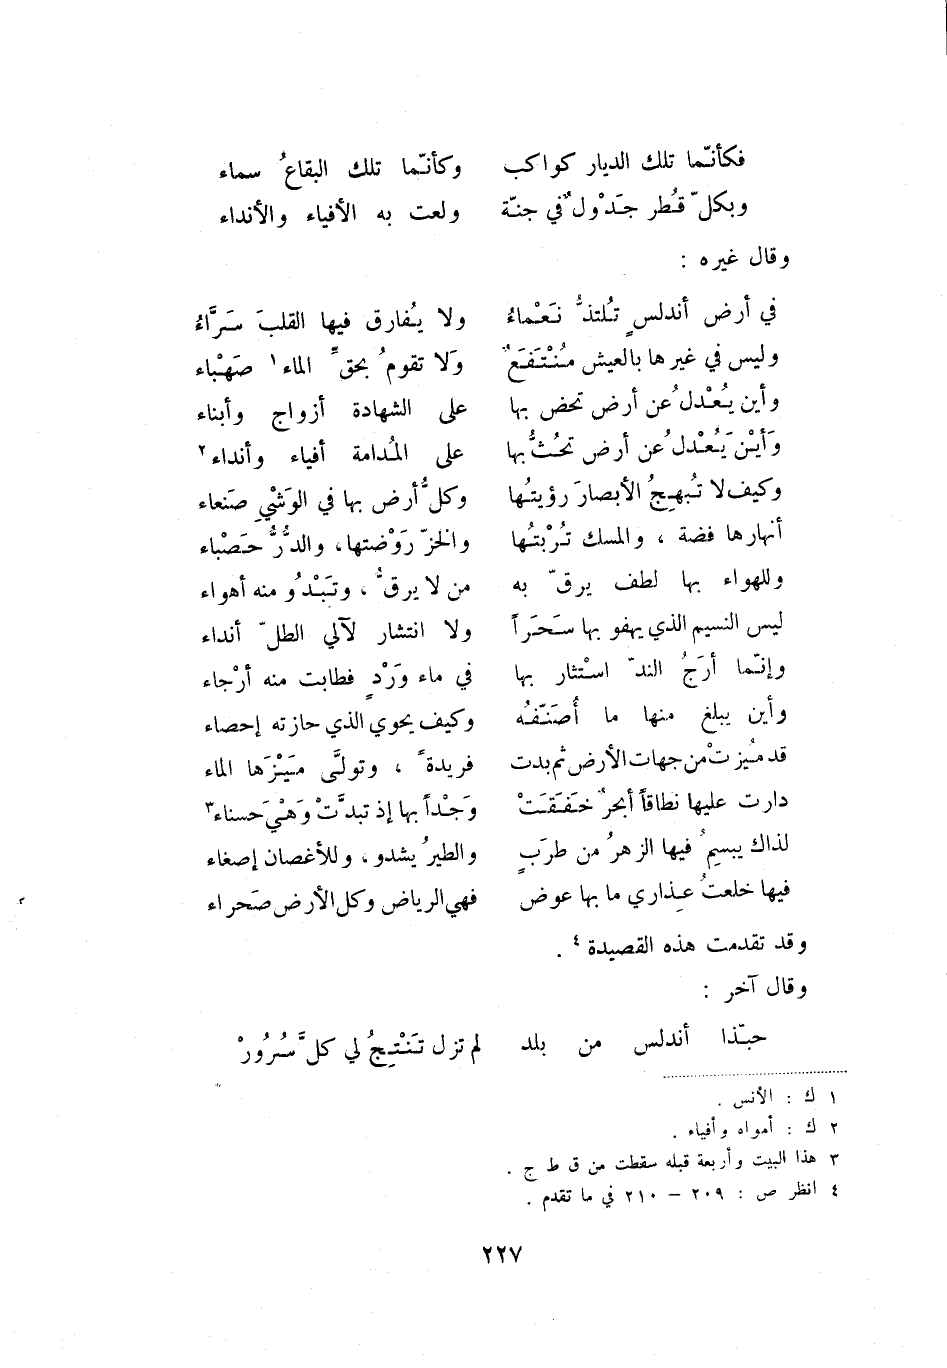 فكأنّما تلك الديار كواكب وكأنّما تلك البقاعُ سماء
وبكلّ قُطر جَدْولٌ في جنّة ولعت به الأفياء والأنداء
وقال غيره :
في أرض أندلسٍ تُلتذُّ نَعْماءُ ولا يُفارق فيها القلبَ سَرَّاءُ
وليس في غيرها بالعيش مُنْتَفَعٌ وَلا تقومُ بحقِّ الماء١ صَهْباء
وأين يُعْدلُ عن أرض تحض بها على الشهادة أزواج وأبناء
وَأيْنَ يَعُدْلُ عن أرض تحُثُّ بها على المُدامة أفياء وأنداء٢
وكيف لا تُبهِجُ الأبصارَ رؤيتُها وكلُّ أرض بها في الوَشْيِ صَنعاء
أنهارها فضة ، والمسك تُرْبتُها والخزّ رَوْضتها ، والدُّرُّ حَصْباء
وللهواء بها لطف يرقّ به من لا يرقُّ ، وتَبْدُو منه أهواء
ليس النسيم الذي يهفو بها سَحَراً ولا انتشار لآلي الطلّ أنداء
وإنّما أرَجُ الندّ اسْتثار بها في ماء وَرْدٍ فطابت منه أرْجاء
وأين يبلغ منها ما أُصَنّفُه وكيف يحوي الذي حازته إحصاء
قد مُيزتْ من جهات الأرض ثم بدت فريدةً ، وتولَّى مَيْزَها الماء
دارت عليها نطاقاً أبحرٌ خَفَقَتْ وَجْداً بها إذ تبدَّتْ وَهْيَ حسناء٣
لذاك يبسِمُ فيها الزهرُ من طرَبٍ والطيرُ يشدو ، وللأغصان إصغاء
فيها خلعتُ عِذاري ما بها عوض فهي الرياض وكل الأرض صَحراء
وقد تقدمت هذه القصيدة٤ .
وقال آخر :
حبّذا أندلس من بلد لم تزل تَنْتِجُ لي كلَّ سُرُورْ
١ ك : الأنس .
٢ ك : أمواه وأفياء .
٣ هذا البيت وأربعة قبله سقطت من ق ط ج .
٤ انظر ص : ٢٠٩ – ٢١٠ في ما تقدم .
٢٢٧